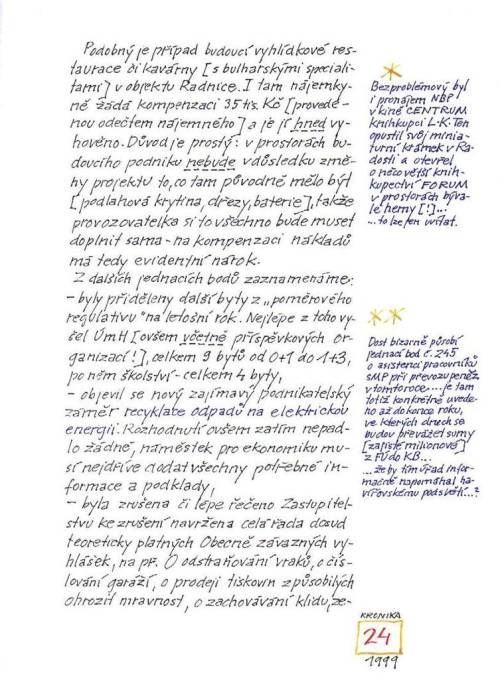 Podobný je případ budoucí vyhlídkové res-
taurace či kavárny [s bulharskými speciali-
tami] v objektu Radnice. I tam nájemky-
ně žádá kompenzaci 35 tis. Kč [provede-
nou odečtem nájemného] a je jí hned vy-
hověno. Důvod je prostý: v prostorách bu-
doucího podniku nebude v důsledku změ-
ny projektu to, co tam původně mělo být
[podlahová krytina, dřezy, baterie], takže
provozovatelka si to všechno bude muset
doplnit sama - na kompenzaci nákladů
má tedy evidentní nárok.
Z dalších jednacích bodů zaznamenáme:
- byly přiděleny další byty z „poměrového
regulativu" na letošní rok. Nejlépe z toho vy-
šel ÚMH [ovšem včetně příspěvkových or-
ganizací!], celkem 9 bytů od 0+1 do 1+3,
po něm školství - celkem 4 byty,
- objevil se nový zajímavý podnikatelský
záměr recyklate odpadů na elektrickou
energii. Rozhodnutí ovšem zatím nepad-
lo žádné, náměstek pro ekonomiku mu-
sí nejdříve dodat všechny potřebné in-
formace a podklady,
- byla zrušena či lépe řečeno Zastupitel-
stvu ke zrušení navržena celá řada dosud
teoreticky platných Obecně závazných vy-
hlášek, na př. O odstraňování vraků, o čís-
lování garáží, o prodeji tiskovin způsobilých
ohrozit mravnost, o zachovávání klidu, ze-
*
Bezproblémový byl
i pronájem NBP
v kině CENTRUM
knihkupci L.K. Ten
opustil svůj minia-
turní krámek v Ra-
dosti a otevřel
o něco větší knih-
kupectví FORUM
v prostorách býva-
lé herny [!]...
...to lze jen uvítat.
**
Dost bizarně působí
jednací bod č. 245
o asistenci pracovníků
SMP při převozu peněz
v tomto roce.... je tam
totiž konkrétně uvede-
no až do konce roku,
ve kterých dnech se
budou převážet sumy
[zajisté milionové]
z FÚ do KB...
...že by tím úřad infor-
mačně napomáhal ha-
vířovskému podsvětí...?
KRONIKA
24
1999